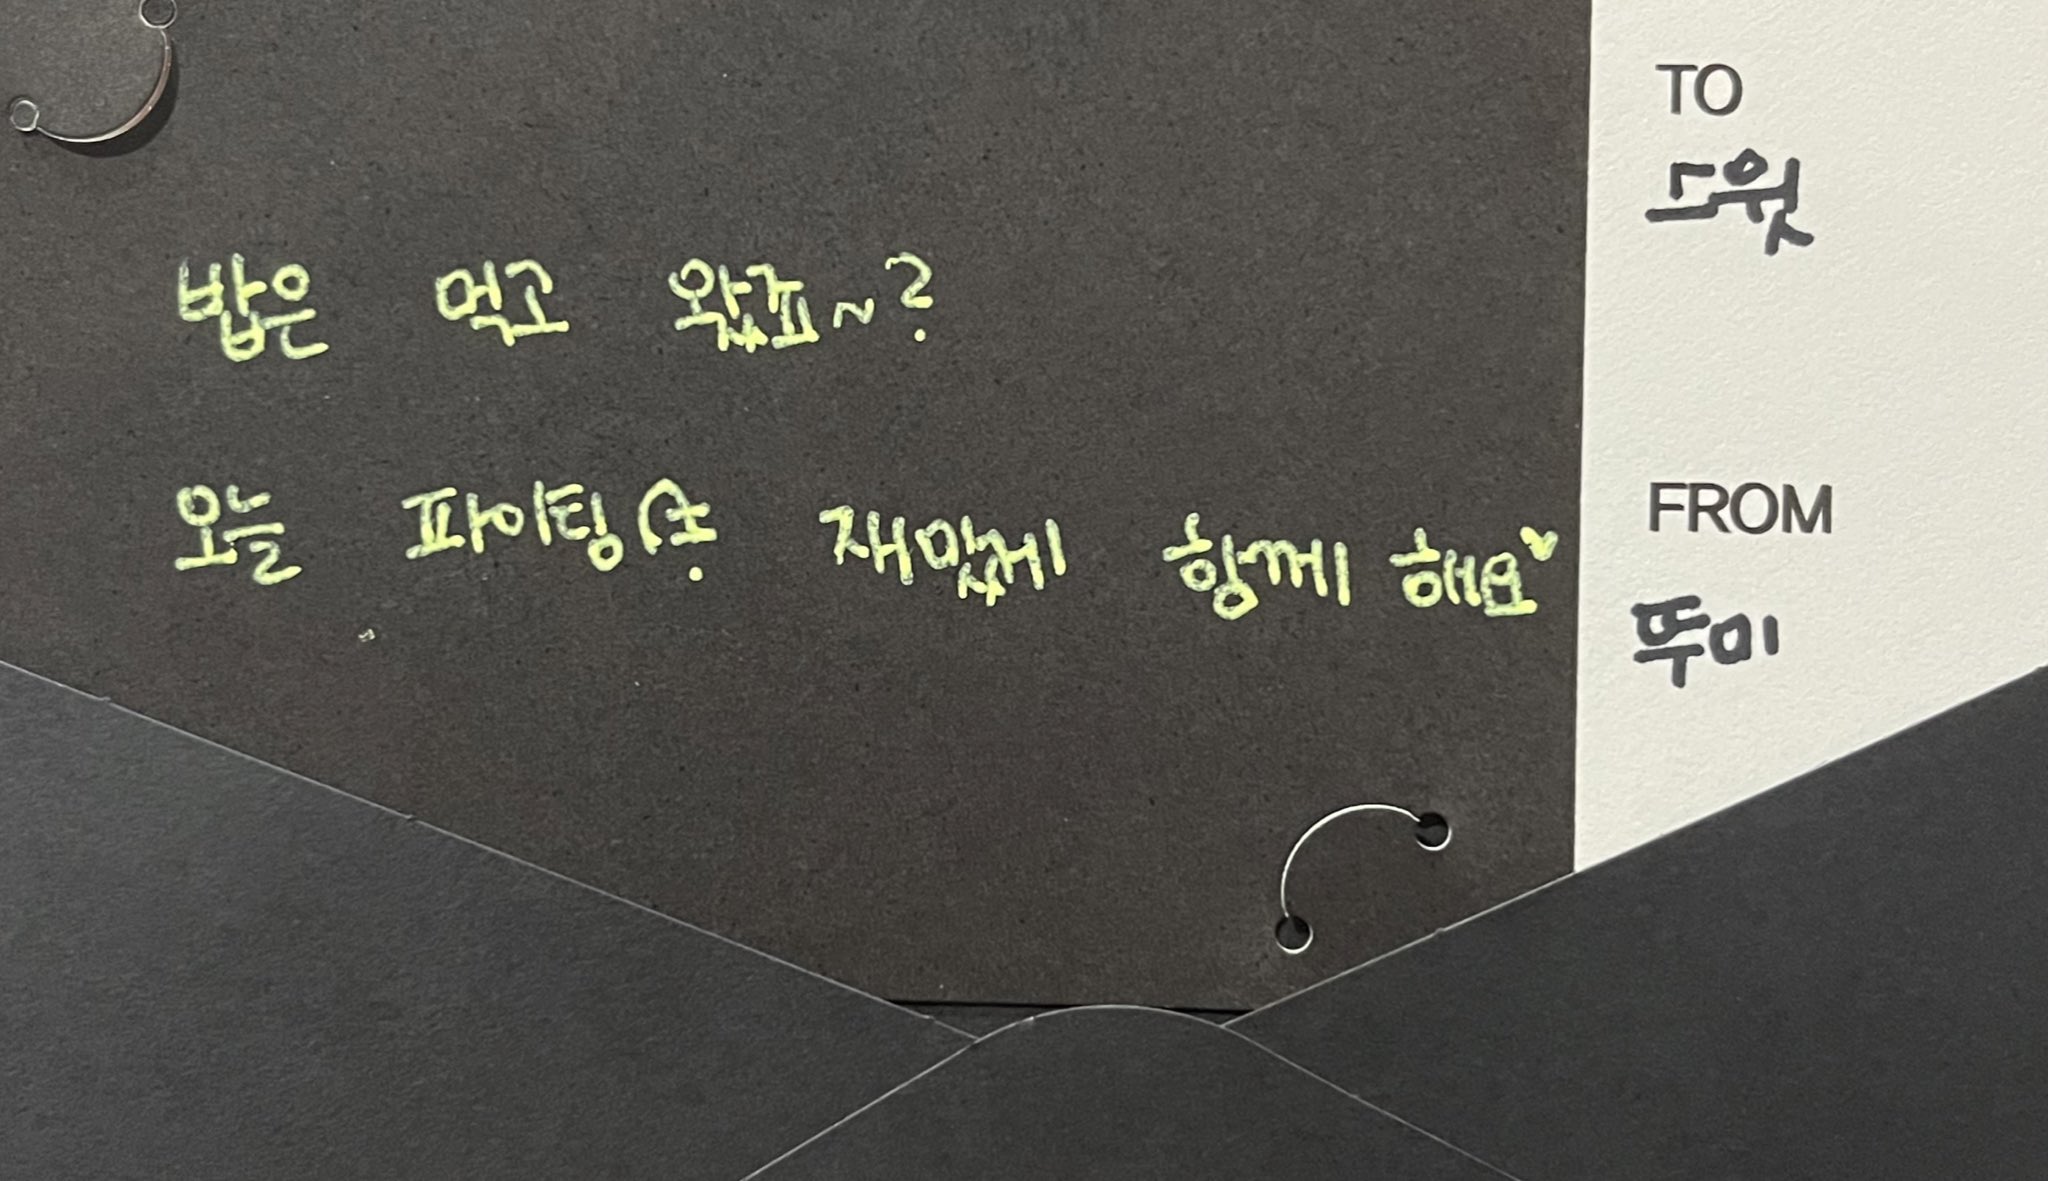 밥은 먹고 왔죠~?
오늘 파이팅 재밌게 함께 해요♥
TO
드윗
FROM
뚜미